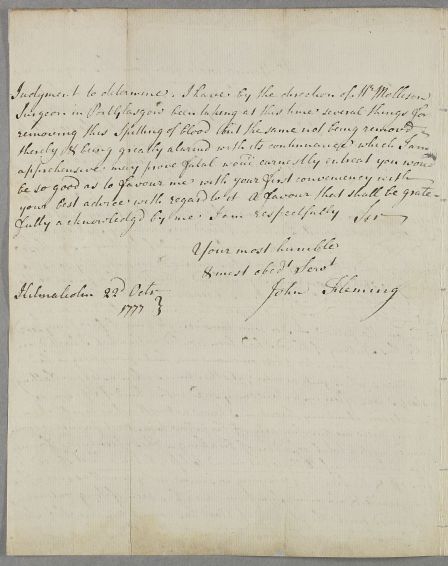 Judgment to determine. I have by the direction of Mr Mollison
Surgeon in Port Glasgow been taking at this time several things for
removing this Spitting of blood but the same not being remov'd
thereby & being greatly alarm'd with its continuance which I am
apprehensive may prove fatal wou'd earnestly entreat you wou'd
be so good as to favour me with your first conveniency with
your best advice with regard to it A favour that shall be grate-
fully acknowledg'd by me I am respectfully Sir
Your most humble
& most obedt Servt
John Fleming
Kilmalcolm 22d Octr
1777